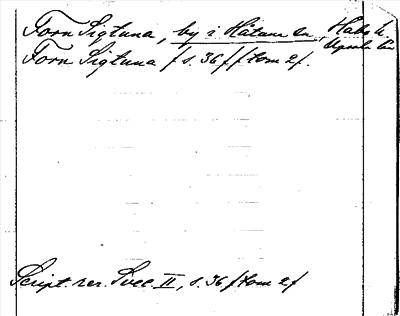 Forn Sigtuna, by i Håtuna sn, Håbo h.
Upsala län
Forn Sigtuna (s. 36 (f tom 2).
Script. rer. Svec. II, s. 36 (tom 2)